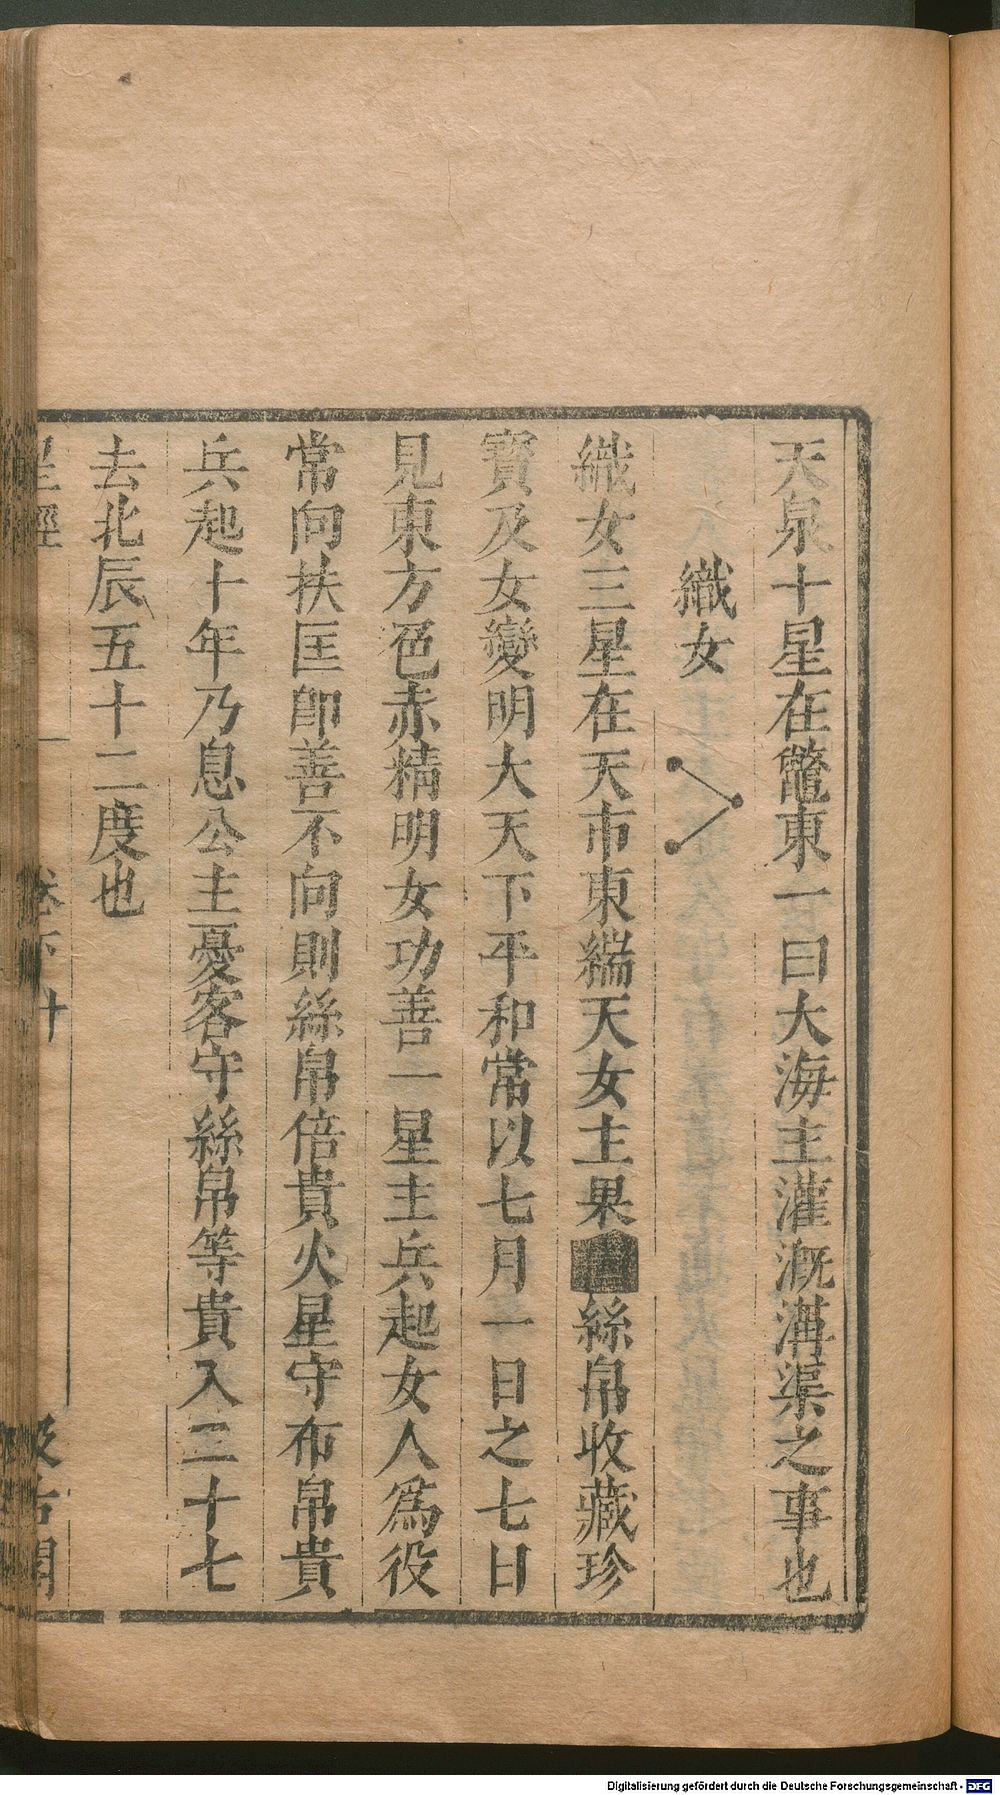 天泉十星在鼈東一曰大海主灌溉溝渠之事也
織女
織女三星在天市東端天女主果絲帛收藏珍
寳及女變明大天下平和常以七月一日之七日
見東方色赤精明女功善一星主兵起女人為役
常向扶匡卽善不向則絲帛倍貴火星守布帛貴
兵起十年乃息公主憂客守絲帛等貴入二十七
去北辰五十二度也
星經 卷下 十 汲古閣
Digitalisierung gefördert durch die Deutsche Forschungsgemeinschaft - DFG